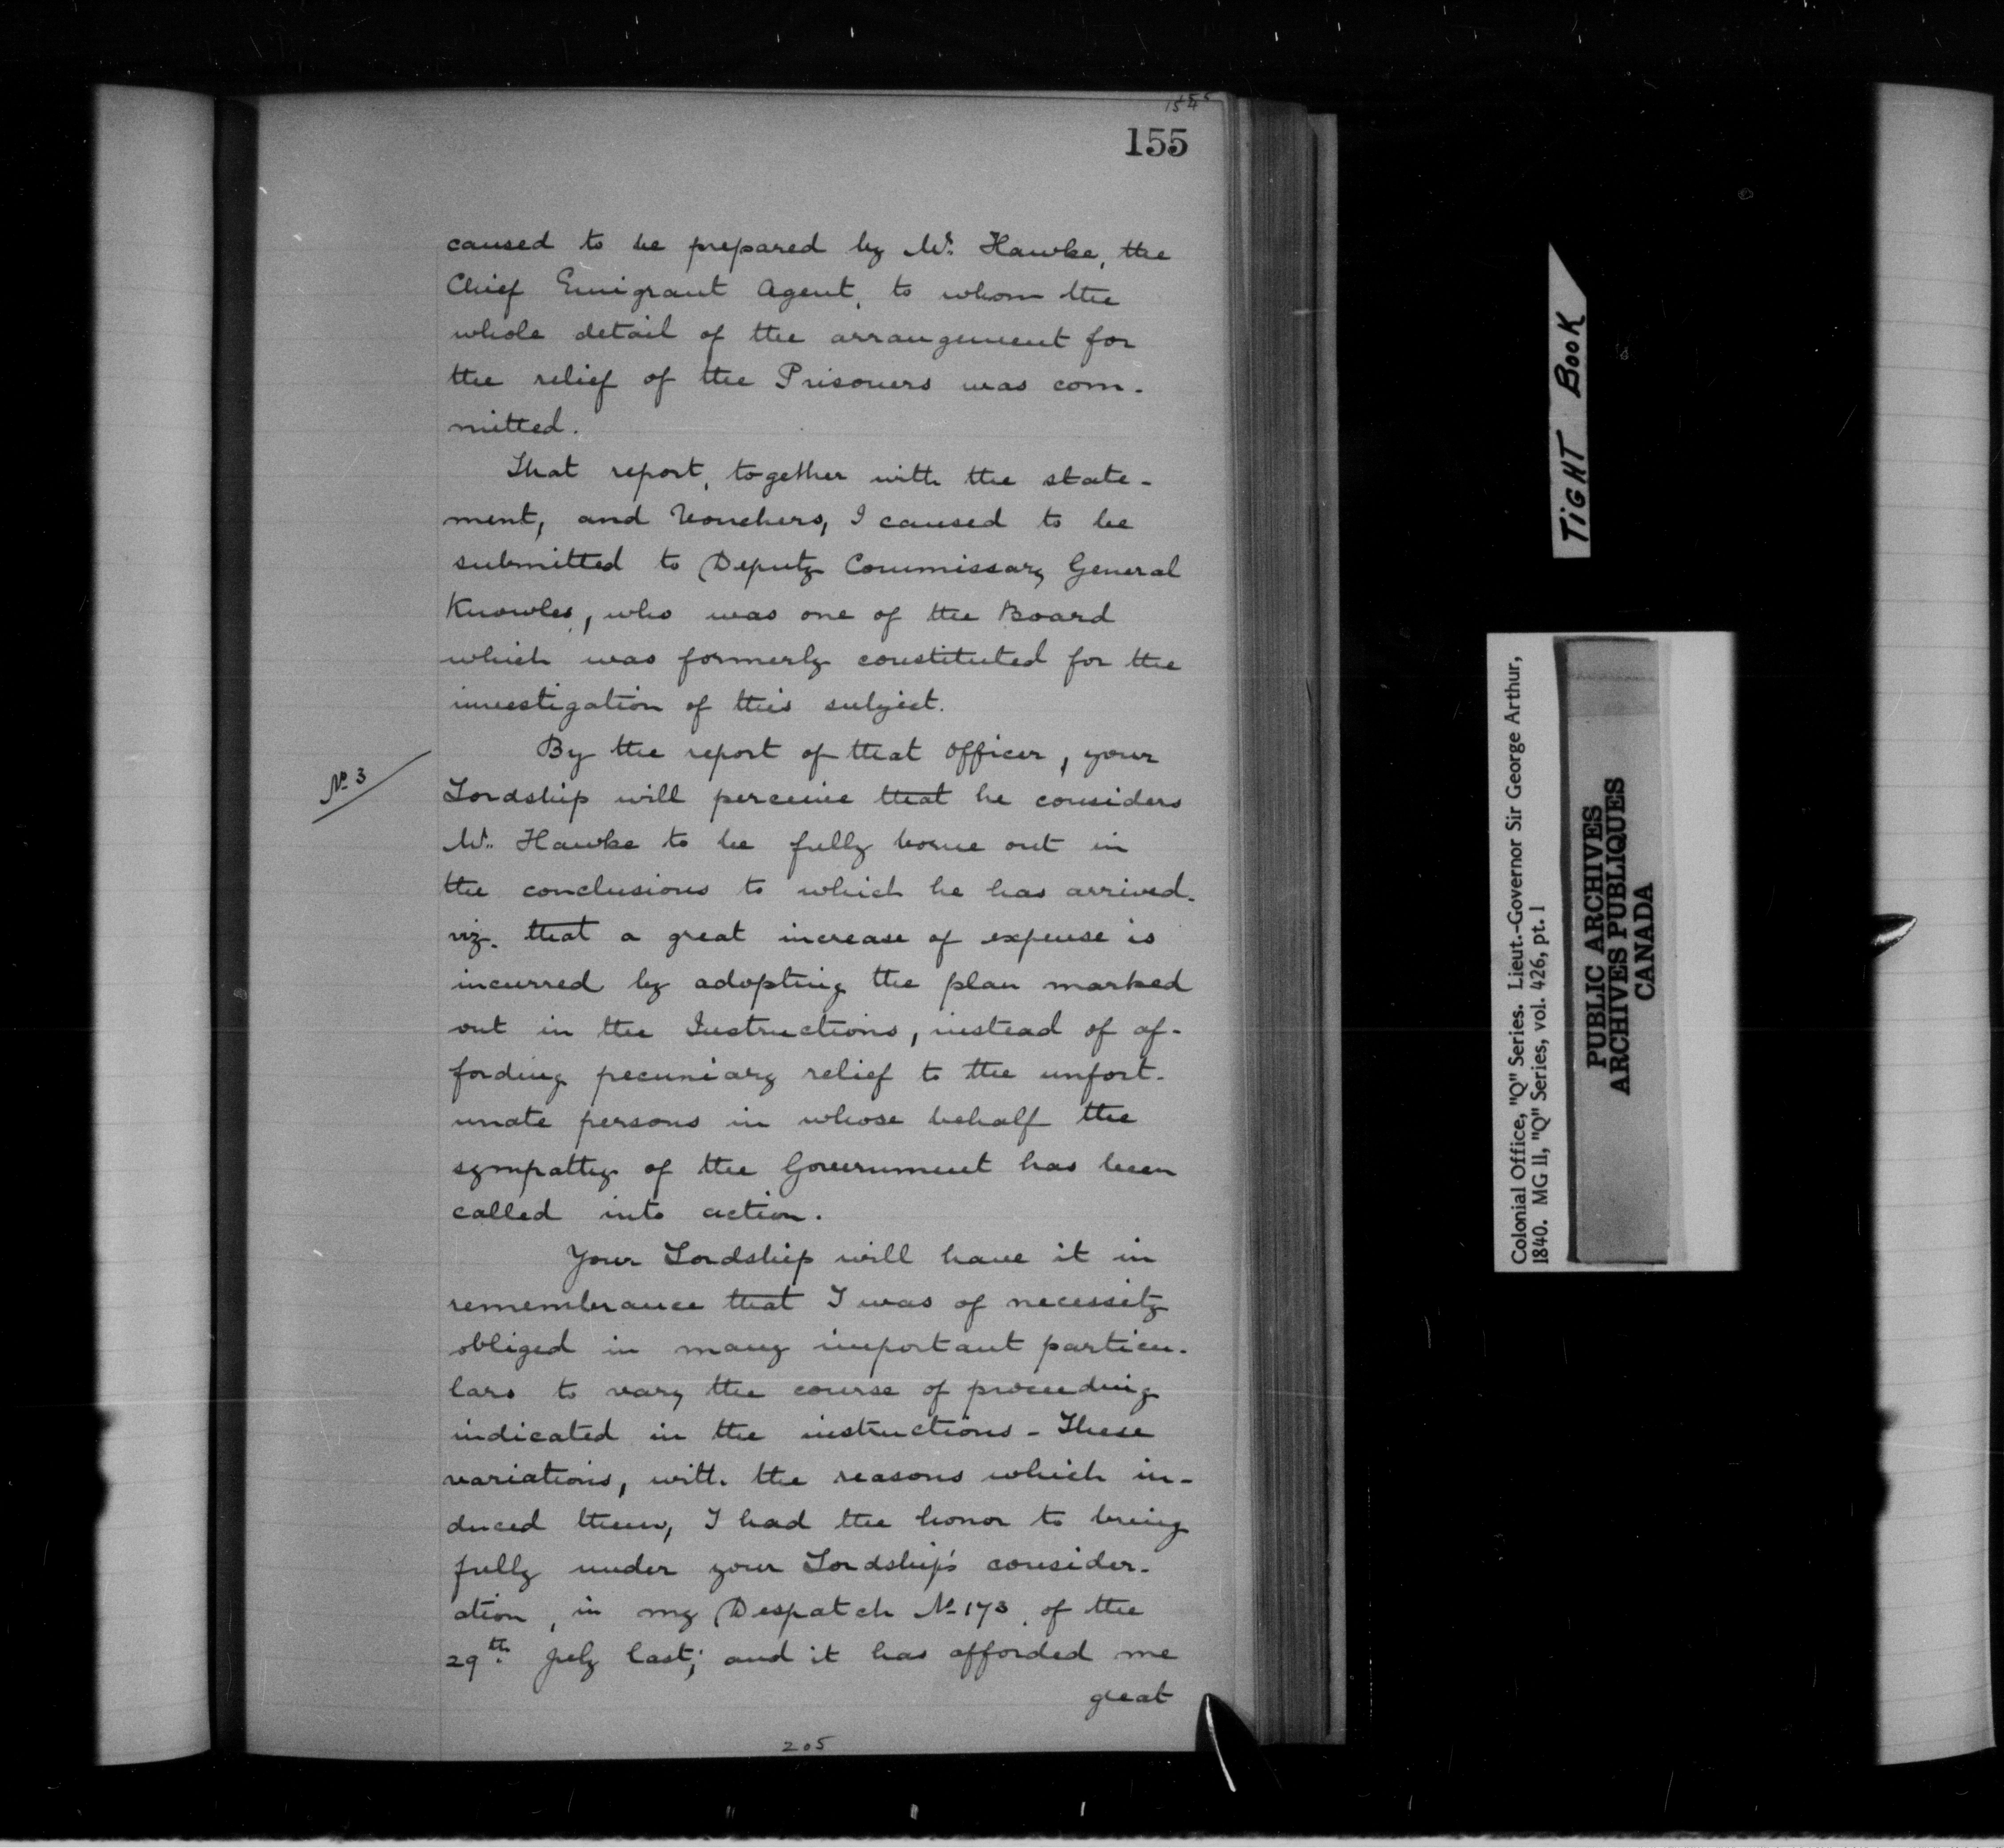 155
caused to be prepared by Mr. Hawke, the
Chief Emigrant Agent, to whom the
whole detail of the arrangement for
the relief of the Prisoners was com-
mitted.
That report, together with the state-
ment, and Vouchers, I caused to be
submitted to Deputy Commissary General
Knowles, who was one of the Board
which was formerly constituted for the
investigation of this subject.
No. 3
By the report of that Officer, your
Lordship will perceive that he considers
Mr. Hawke to be fully borne out in
the conclusions to which he has arrived.
viz. that a great increase of expense is
incurred by adopting the plan marked
out in the Instructions, instead of af-
fording pecuniary relief to the unfort-
unate persons in whose behalf the
sympathy of the Government has been
called into action.
Your Lordship will have it in
remembrance that I was of necessity
obliged in many important particu-
lars to vary the course of proceeding
indicated in the instructions - These
variations, with the reasons which in-
duced them, I had the honor to bring
fully under your Lordship's consider-
ation, in my Despatch No 173, of the
29th. July last; and it has afforded me
great
205
TIGHT BOOK
Colonial Office, "Q" Series. Lieut.-Governor Sir George Arthur,
1840. MG 11, "Q" Series, vol. 426, pt. 1
PUBLIC ARCHIVES
ARCHIVES PUBLIQUES
CANADA